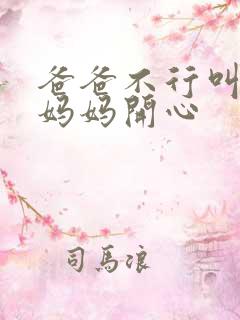 爸爸不行叫
妈妈開心
司馬浪